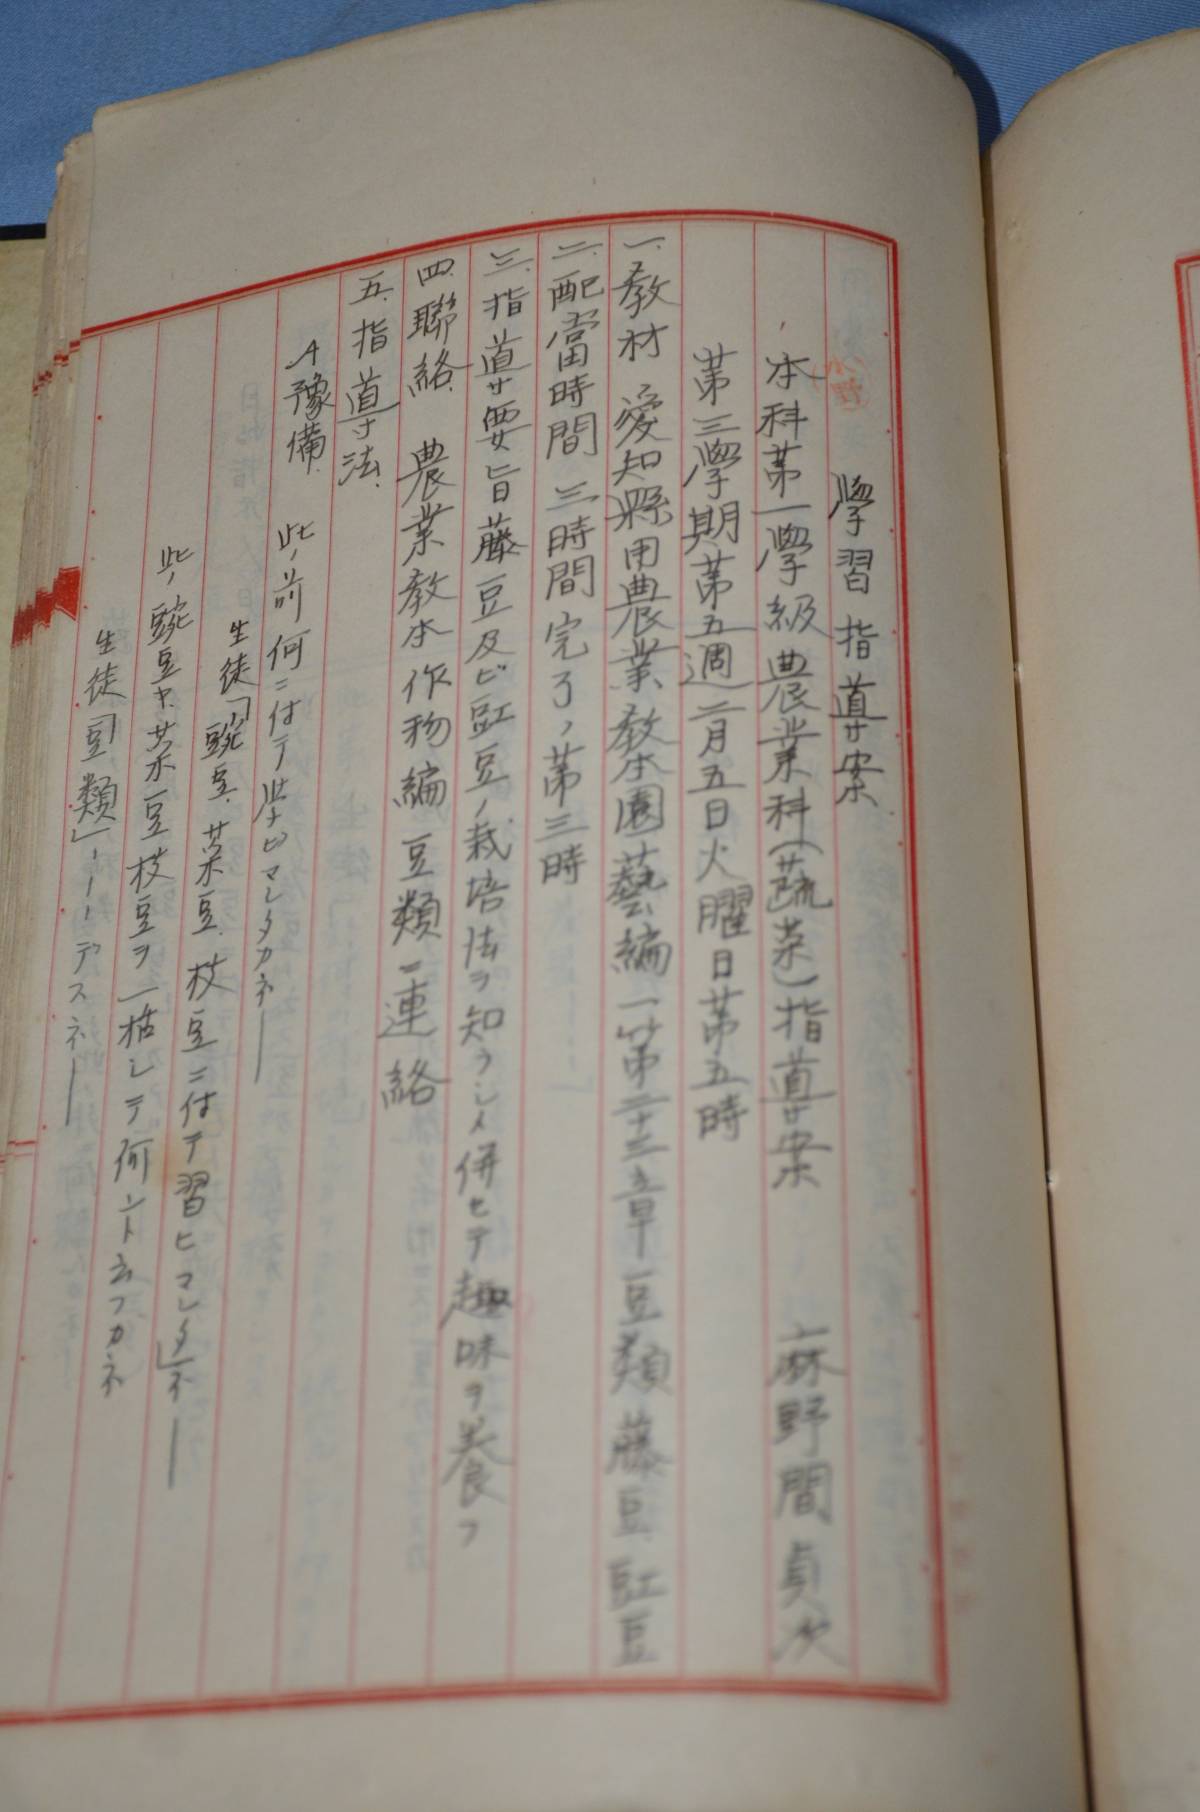 學習指導案
水野
本科第一學級農業科(蔬菜)指導案 麻野間貞次
第三學期第五週二月五日火曜日第五時
一.教材 愛知縣用農業教本園藝編一 第二十三章 豆類 藤豆 豇豆
二.配當時間 三時間完了ノ第三時
三.指導要旨 藤豆及ビ豇豆ノ栽培法ヲ知ラシメ併セテ趣味ヲ養フ
四.聯絡. 農業教本作物編豆類ニ連絡
五.指導法.
A豫備. 此ノ前何ニ付テ學ビマシタカネ―
生徒「豌豆.菜豆.枝豆ニ付テ習ヒマシタ」ネ―
此ノ豌豆ヤ菜豆枝豆ヲ一括シテ何ント云フカネ
生徒「豆類」ーーデスネ―